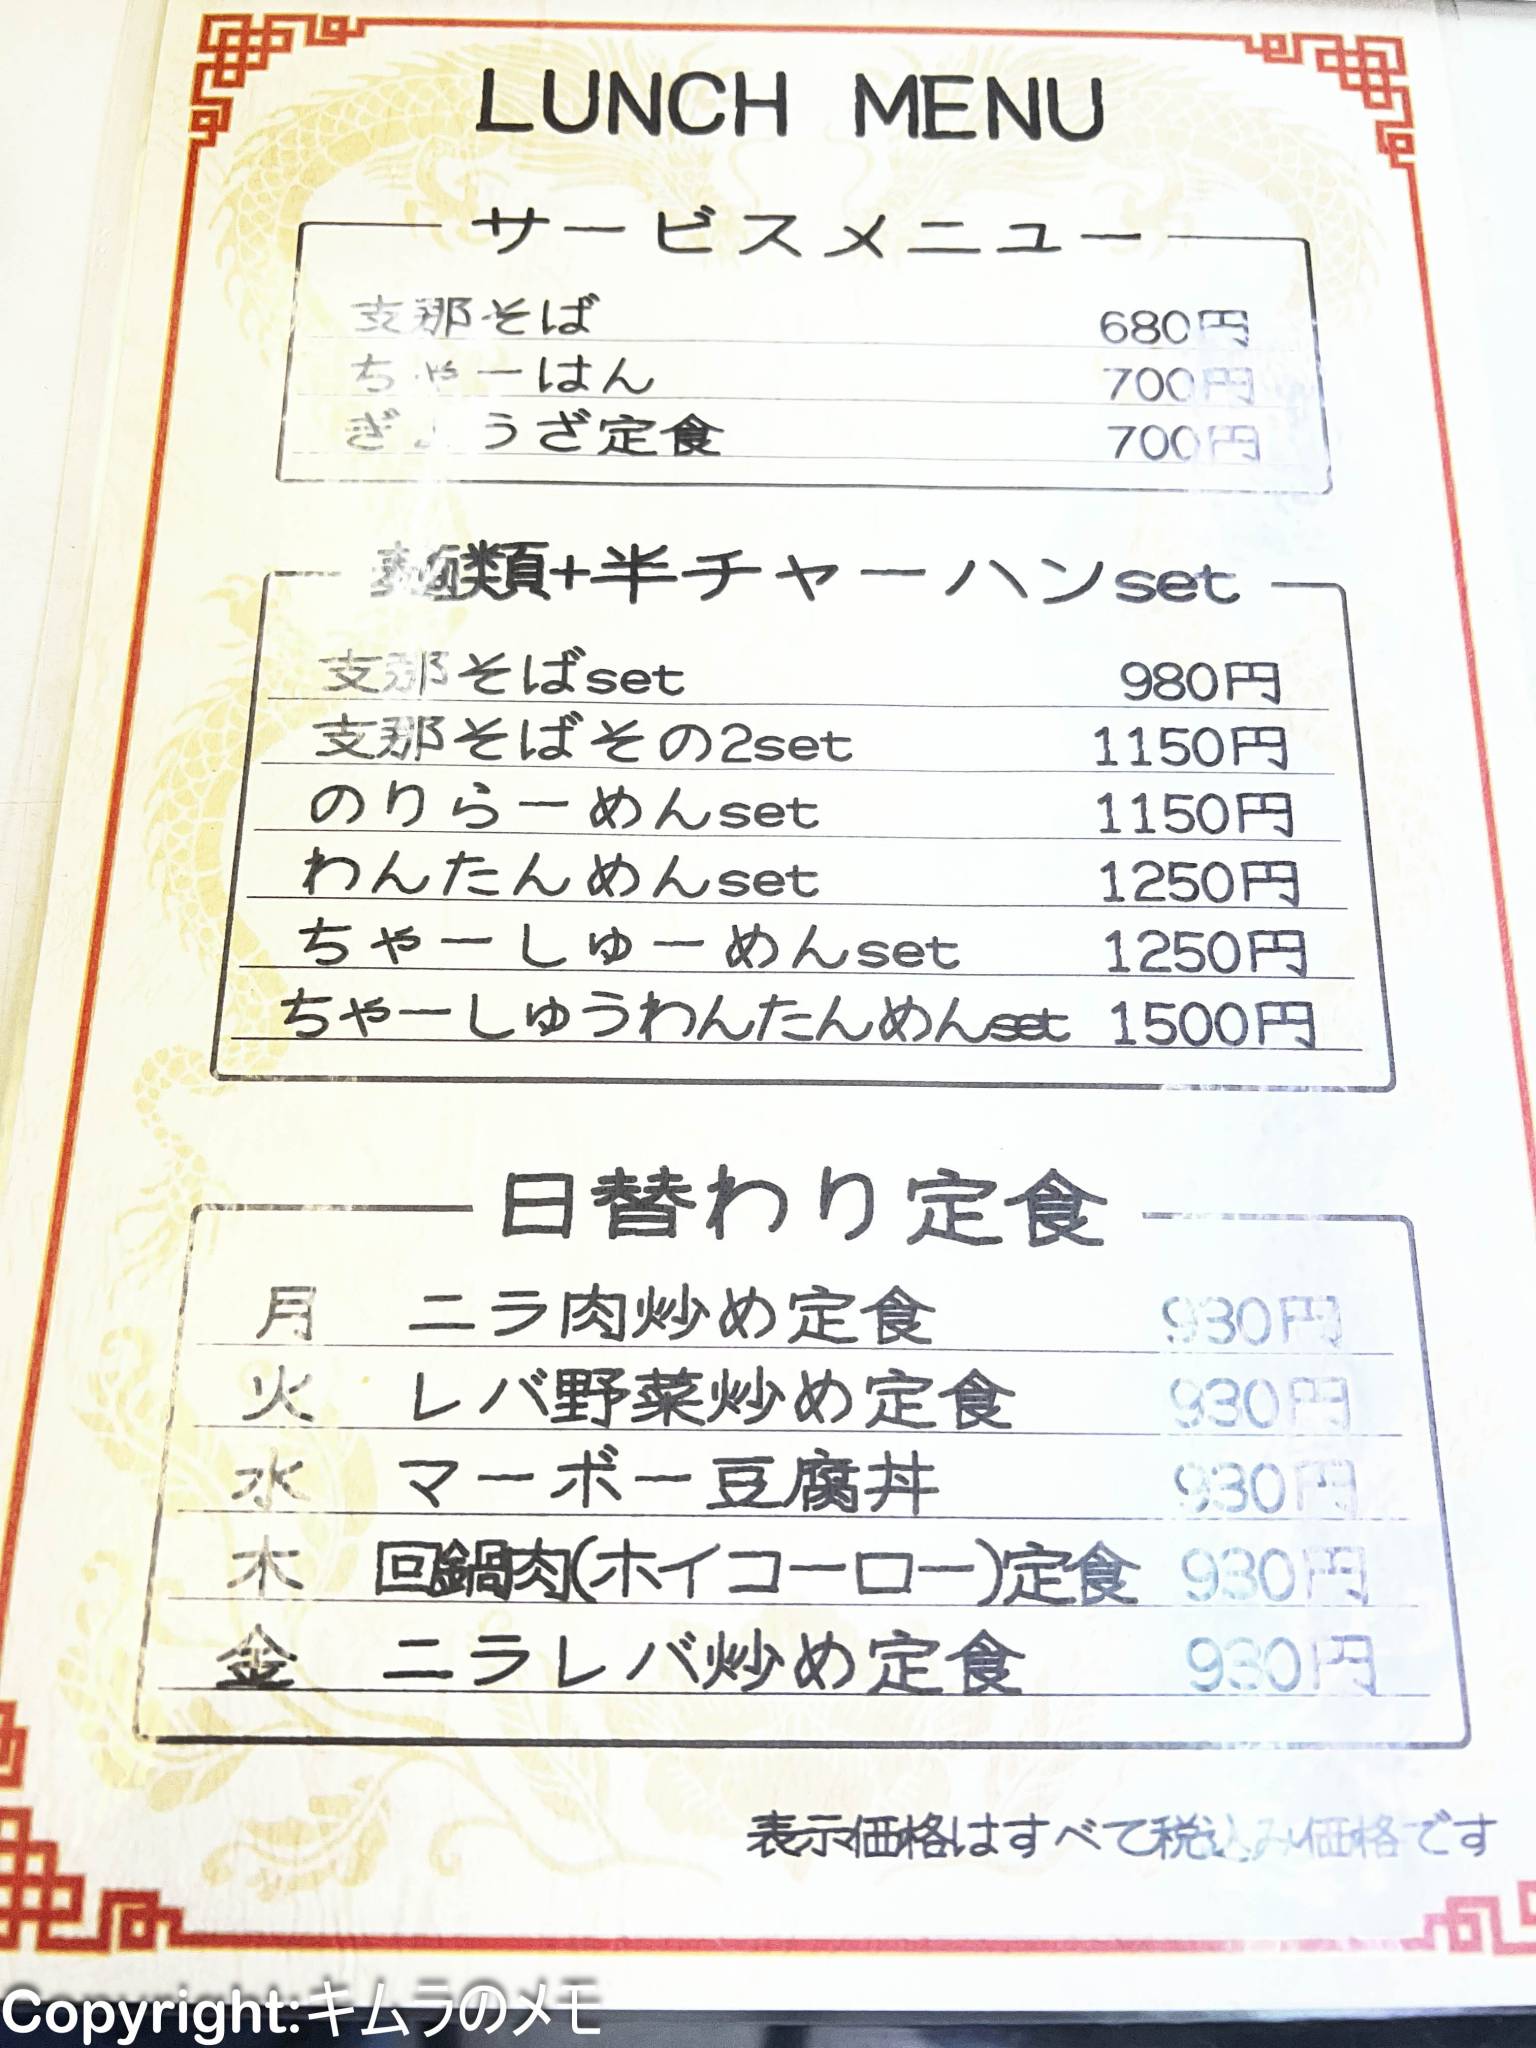 LUNCH MENU
サービスメニュー
支那そば 680円
ちゃーはん 700円
ぎょうざ定食 700円
麺類+半チャーハンset
支那そばset 980円
支那そばその2set 1150円
のりらーめんset 1150円
わんたんめんset 1250円
ちゃーしゅーめんset 1250円
ちゃーしゅうわんたんめんset 1500円
日替わり定食
月 ニラ肉炒め定食 930円
火 レバ野菜炒め定食 930円
水 マーボー豆腐丼 930円
木 回鍋肉(ホイコーロー)定食 930円
金 ニラレバ炒め定食 930円
表示価格はすべて税込み価格です
Copyright:キムラのメモ